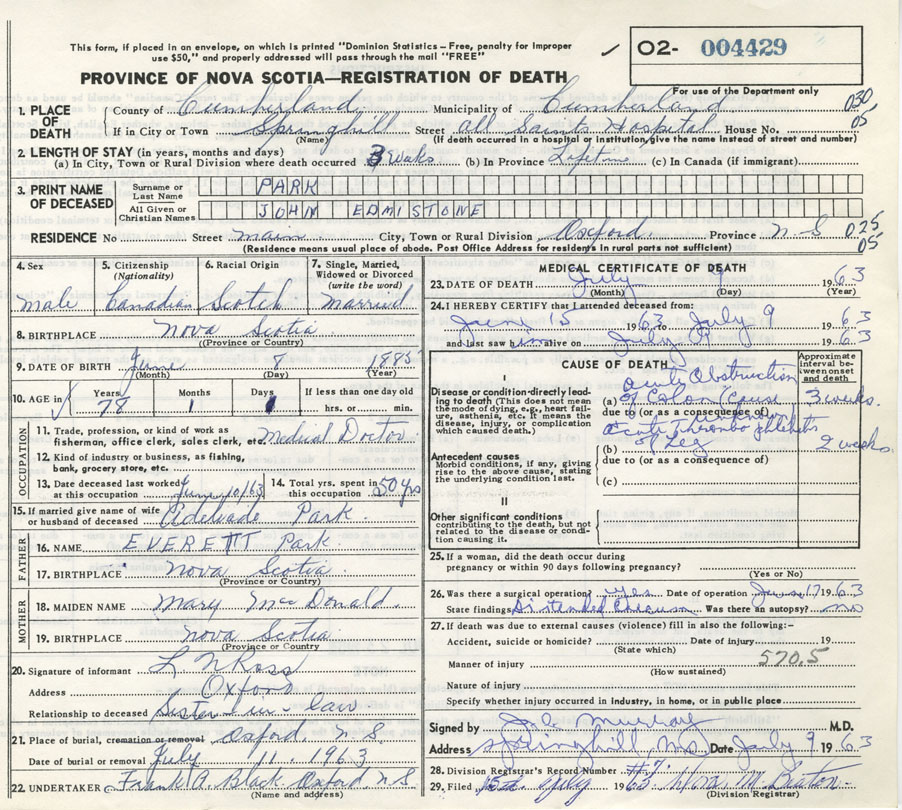 This form, if placed in an envelope, on which is printed "Dominion Statistics – Free, penalty for Improper
use $50," and properly addressed will pass through the mail "FREE"
✓ 02- 004429
PROVINCE OF NOVA SCOTIA—REGISTRATION OF DEATH
For use of the Department only
1. PLACE OF DEATH
County of Cumberland Municipality of Cumberland 030
If in City or Town Springhill Street All Saints Hospital House No. 05
(Name) (If death occurred in a hospital or institution, give the name instead of street and number)
2. LENGTH OF STAY (in years, months and days)
(a) In City, Town or Rural Division where death occurred 3 Weeks (b) In Province Lifetime (c) In Canada (if immigrant)
3. PRINT NAME OF DECEASED
Surname or Last Name PARK
All Given or Christian Names JOHN EDMISTONE
RESIDENCE No Street Main City, Town or Rural Division Oxford Province N S 025
(Residence means usual place of abode. Post Office Address for residents in rural parts not sufficient) 05
4. Sex
male
5. Citizenship
(Nationality)
Canadian
6. Racial Origin
Scotch
7. Single, Married,
Widowed or Divorced
(write the word)
Married
8. BIRTHPLACE Nova Scotia
(Province or Country)
9. DATE OF BIRTH June 8 1885
(Month) (Day) (Year)
10. AGE in Years Months Days If less than one day old
78 1 1 hrs. or min.
OCCUPATION
11. Trade, profession, or kind of work as
fisherman, office clerk, sales clerk, etc. Medical Doctor
12. Kind of industry or business, as fishing,
bank, grocery store, etc.
13. Date deceased last worked
at this occupation June 10/63
14. Total yrs. spent in
this occupation 50 yrs
15. If married give name of wife
or husband of deceased Adelaide Park
FATHER
16. NAME EVERETT Park
17. BIRTHPLACE Nova Scotia
(Province or Country)
MOTHER
18. MAIDEN NAME Mary McDonald
19. BIRTHPLACE Nova Scotia
(Province or Country)
20. Signature of informant L N Ross
Address Oxford
Relationship to deceased Sister-in-law
21. Place of burial, cremation or removal Oxford, N.S.
Date of burial or removal July 11, 1963
22. UNDERTAKER Frank A. Black Oxford N S
(Name and address)
MEDICAL CERTIFICATE OF DEATH
23. DATE OF DEATH July 9 1963
(Month) (Day) (Year)
24. I HEREBY CERTIFY that I attended deceased from:
June 15 1963 to July 9 1963
and last saw him alive on July 9 1963
CAUSE OF DEATH
Approximate interval between onset and death
I
Disease or condition directly leading to death (This does not mean the mode of dying, e.g., heart failure, asthenia, etc. It means the disease, injury, or complication which caused death.)
(a) Acute Obstruction of Colon (Cause unknown 3 weeks.
due to (or as a consequence of)
Antecedent causes
Morbid conditions, if any, giving rise to the above cause, stating the underlying condition last.
(b) acute Thrombophlebitis of Leg 2 weeks.
due to (or as a consequence of)
(c)
II
Other significant conditions
contributing to the death, but not related to the disease or condition causing it.
25. If a woman, did the death occur during
pregnancy or within 90 days following pregnancy?
(Yes or No)
26. Was there a surgical operation? yes Date of operation June 17 1963
State findings Distended Was there an autopsy? no
27. If death was due to external causes (violence) fill in also the following:-
Accident, suicide or homicide? Date of Injury 19
(State which)
Manner of injury 570.5
(How sustained)
Nature of injury
Specify whether injury occurred in industry, in home, or in public place
Signed by Murray M.D.
Address Springhill, NS Date July 9 1963
28. Division Registrar's Record Number #7
29. Filed 15th July 1963 M. Beaton
(Division Registrar)